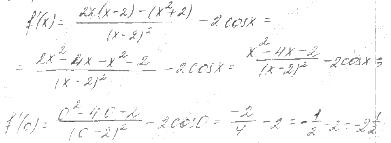 f'(x) = (2x(x-2) - (x²+2))/(x-2)² - 2cosx =
= (2x²-4x-x²-2)/(x-2)² - 2cosx = (x²-4x-2)/(x-2)² - 2cosx;
f'(0) = (0²-4·0-2)/(0-2)² - 2cos0 = -2/4 - 2 = -1/2 - 2 = -2 1/2